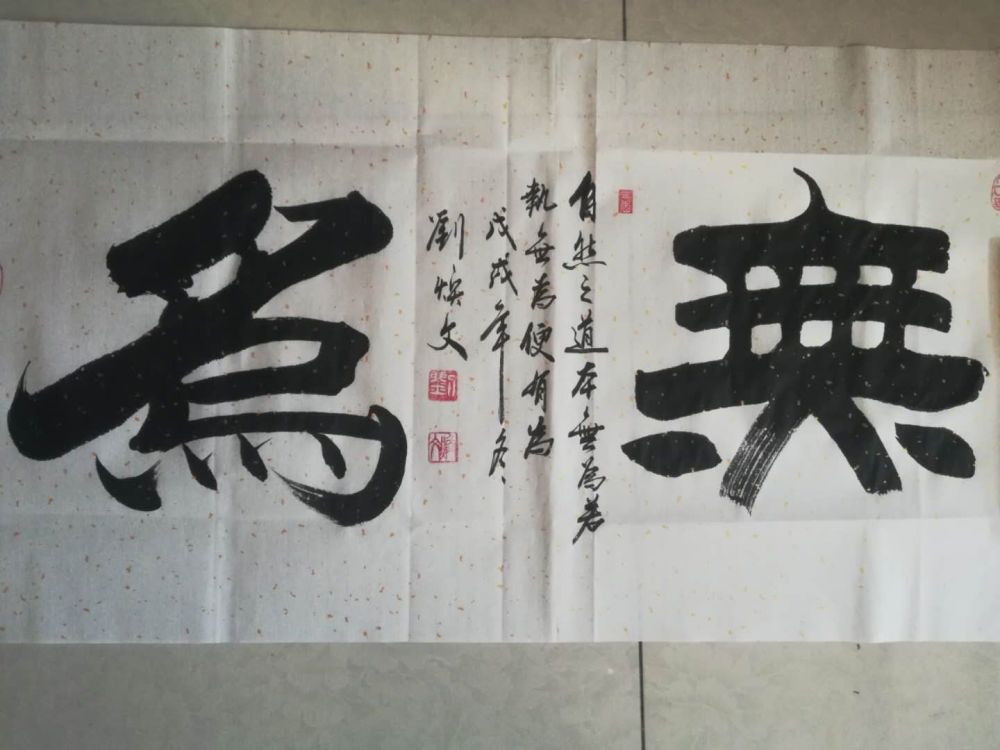 無
自然之道本無為若
執無為便有為
戊戌年冬
劉煥文
為